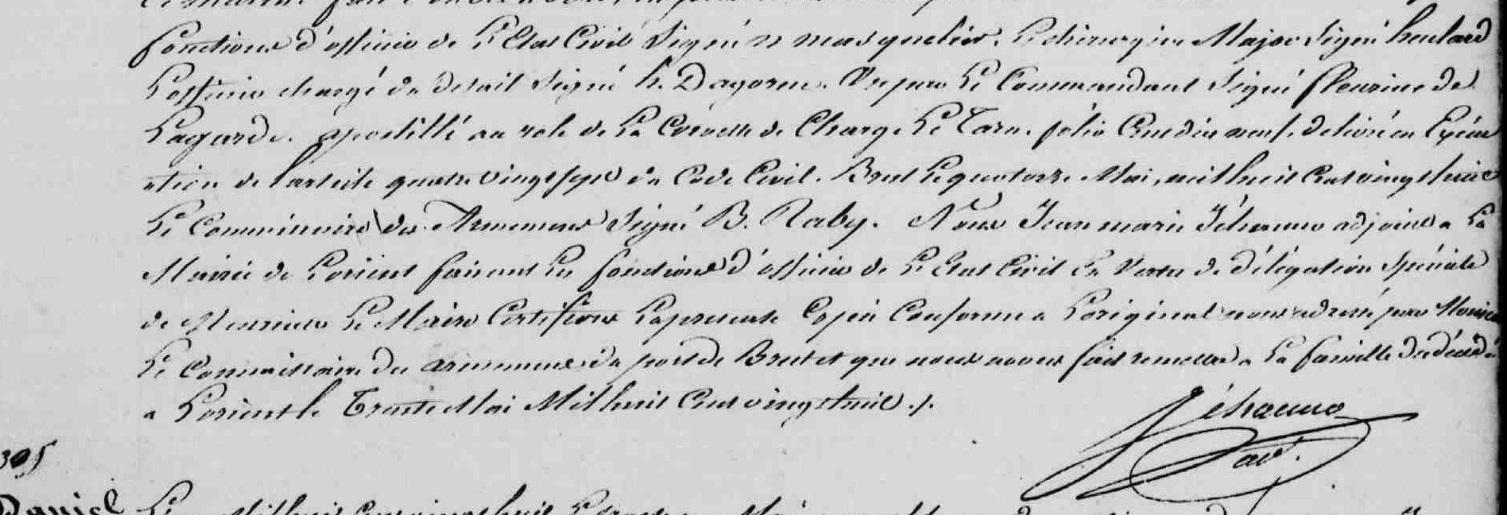 fonctions d'officier de L'Etat Civil Signé masquelier. Le chirurgien Major Signé heulard
L'officier chargé du detail Signé h. Dagorne. Vu par Le Commandant Signé fleurine de
Lagarde. apostillé au role de La Corvette de Charge Le Tarn folio Cent dix neuf. delivré en Exécu
ation de l'article quatre vingt sept du Code Civil. Brest Le quatorze Mai, mil huit Cent vingt huit
Le Commissaire des Armemens Signé B. Raby. Nous Jean marie Jéhanno adjoint a La
Mairie de Lorient faisant Les fonctions d'officier de L'Etat Civil En Vertu de délégation Spéciale
de Monsieur Le Maire Certifions La presente Copie Conforme a L'original nous adressé par Monsieur
Le Commissaire des armemens du port de Brest et que nous avons fait remettre a La famille du décédé
a Lorient le Trente Mai Mil huit Cent vingt huit ./.
Jéhanno
adt.
305
Daniel
mil huit Cent vingt huit